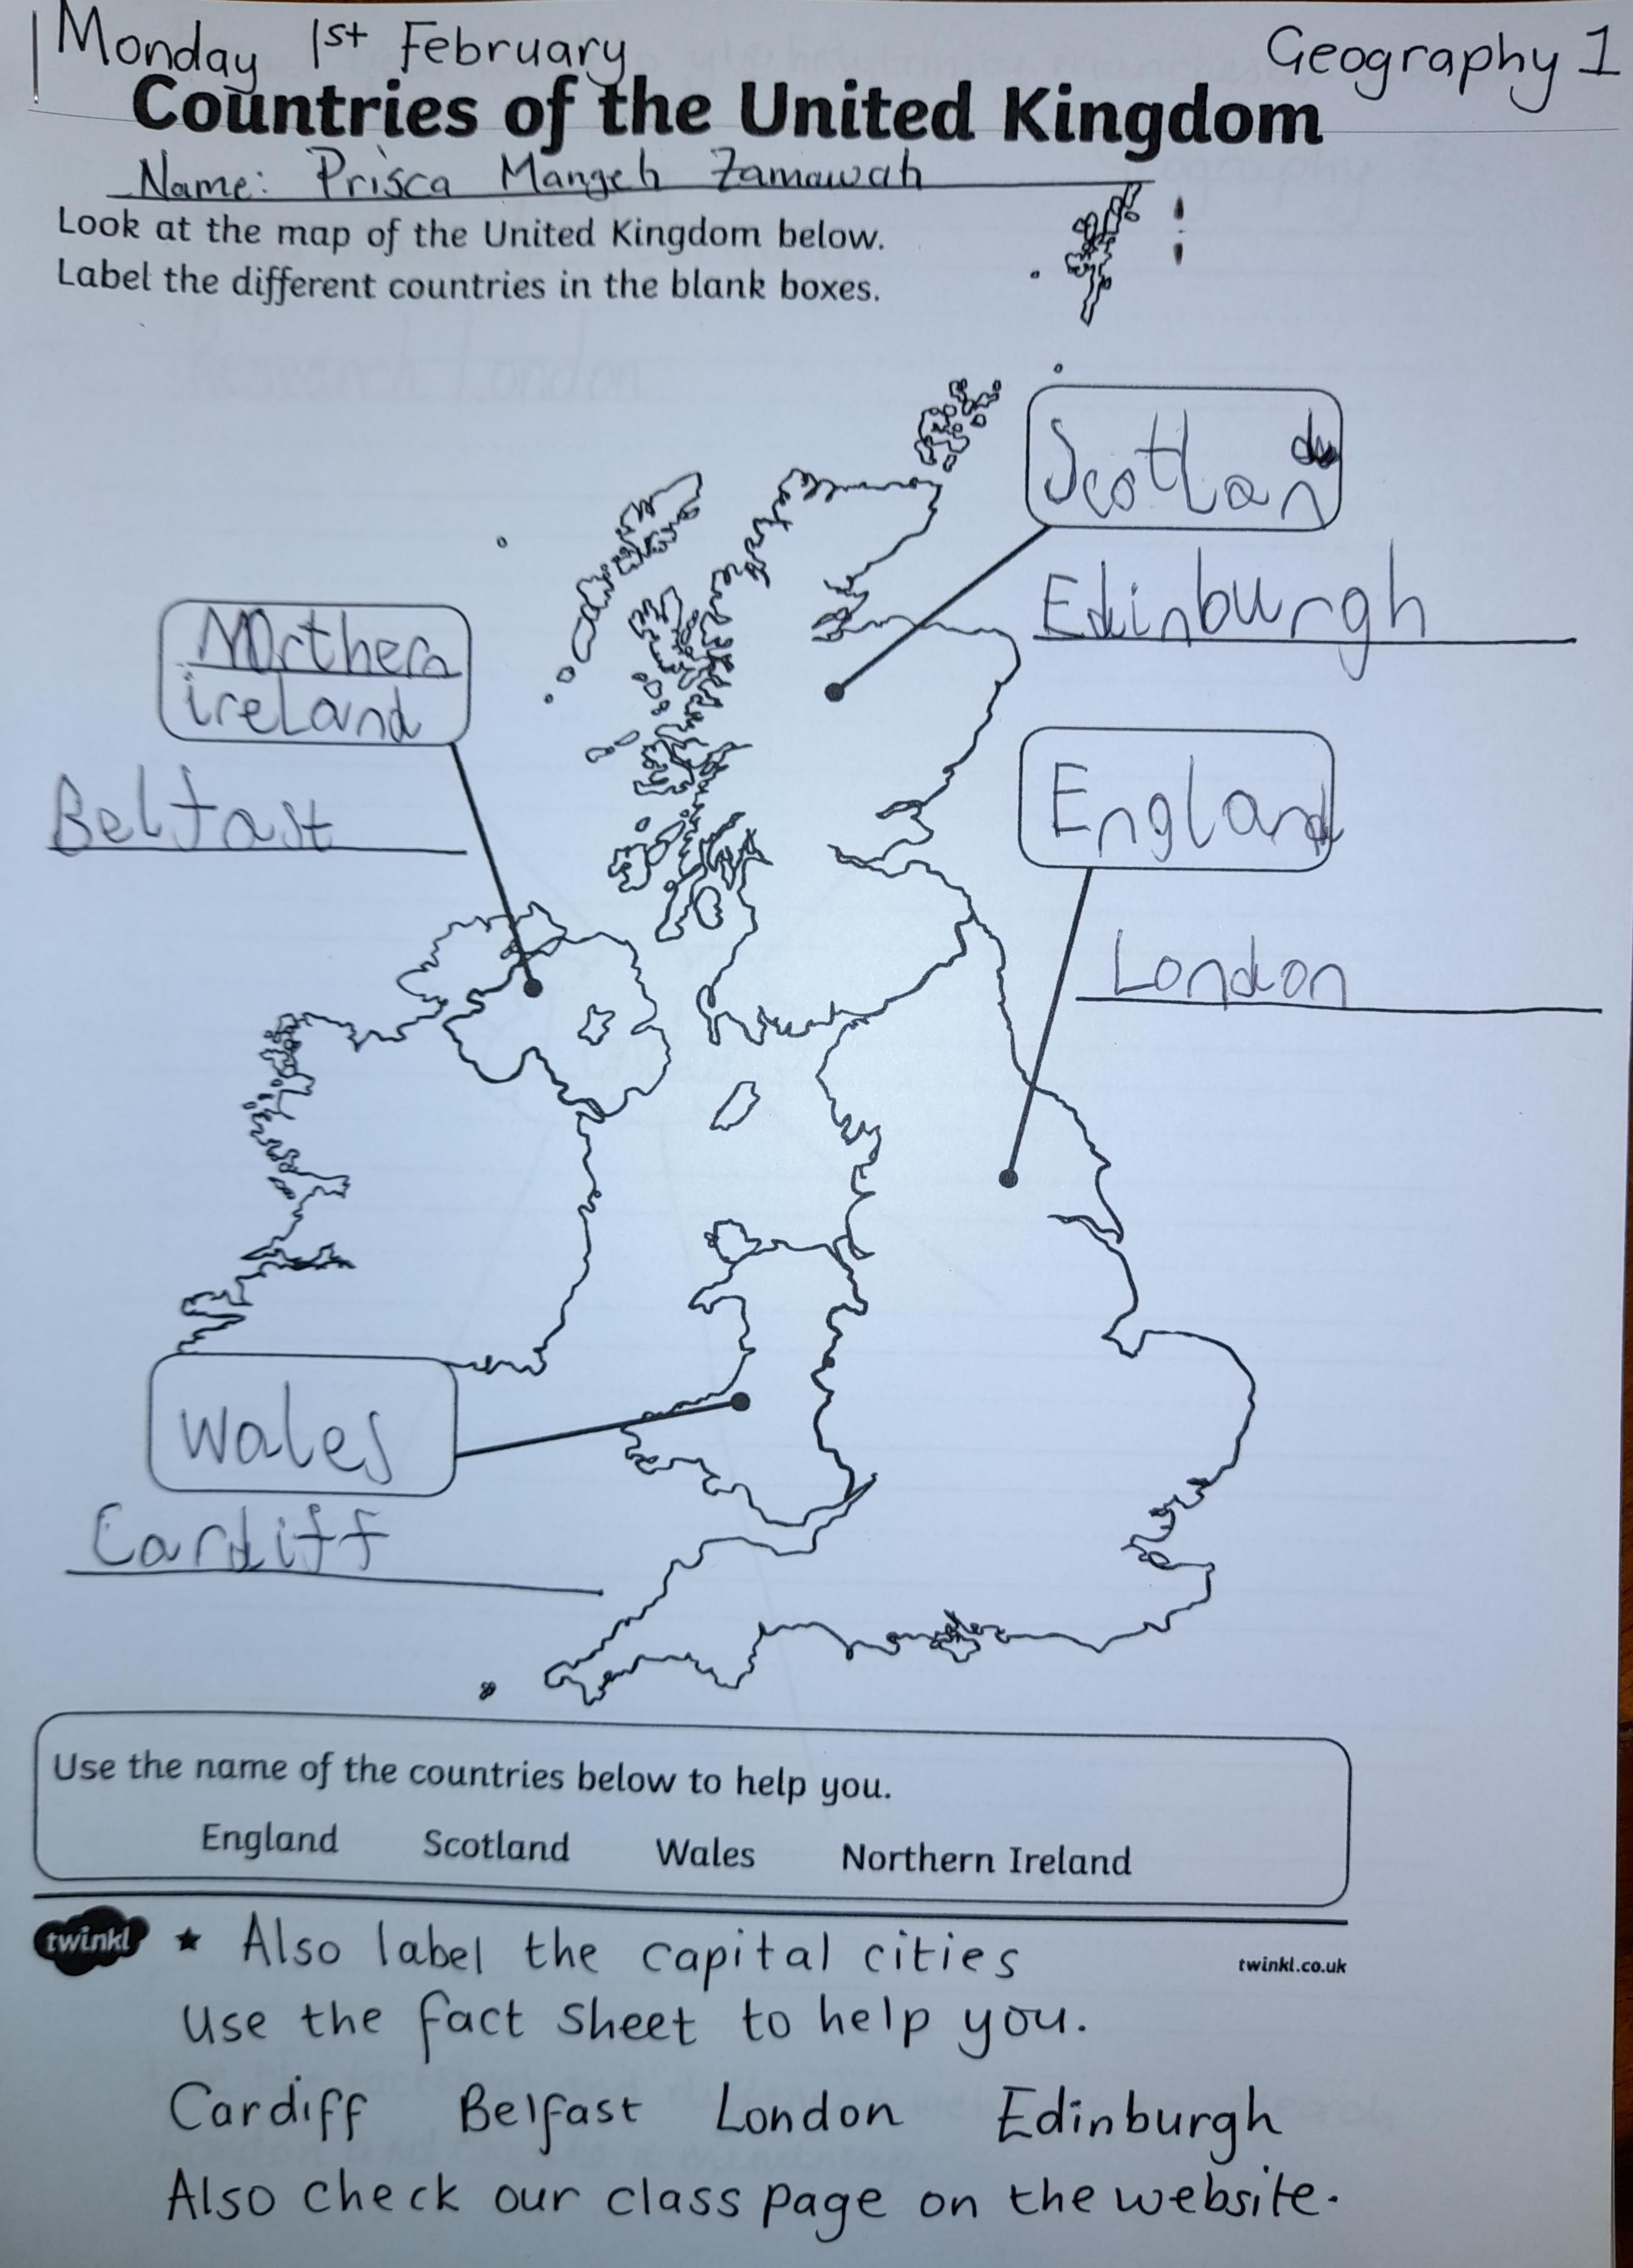 Monday 1st February
Geography 1
Countries of the United Kingdom
Name: Prisca Mangeh Zamawah
Look at the map of the United Kingdom below.
Label the different countries in the blank boxes.
Scotland
Edinburgh
Northern
ireland
Belfast
England
London
Wales
Cardiff
Use the name of the countries below to help you.
England Scotland Wales Northern Ireland
twinkl
★ Also label the capital cities
twinkl.co.uk
Use the fact sheet to help you.
Cardiff Belfast London Edinburgh
Also check our class page on the website.